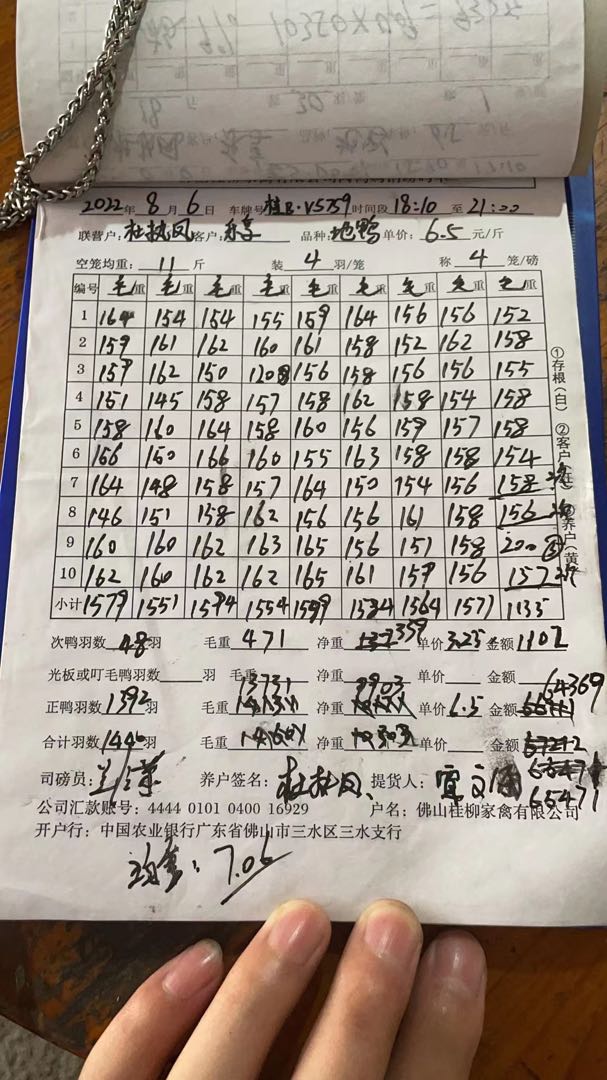 2022年 8月 6日 车牌号 桂R·V5759 时间段 18:10 至 21:00
联营户: 杜执凤 客户: 品种: 地鸭 单价: 6.5 元/斤
空笼均重: 11 斤 装 4 羽/笼 称 4 笼/磅
编号 毛重 毛重 毛重 毛重 毛重 毛重 毛重 毛重 毛重
1 164 154 154 155 159 164 156 156 152
2 159 161 162 160 161 158 152 162 158
3 157 162 150 120 156 158 156 156 155
4 151 145 158 157 158 162 158 154 158
5 158 160 164 158 160 156 159 157 158
6 156 150 166 160 155 163 158 158 154
7 164 148 158 157 164 150 154 156 158
8 146 151 158 162 156 156 161 158 156
9 160 160 162 163 165 156 151 158 200
10 162 160 162 162 165 161 159 156 157
小计 1579 1551 1594 1554 1599 1584 1564 1571 1135
①存根(白) ②客户(红) ③养户(黄)
次鸭羽数 48 羽 毛重 471 净重 359 单价 3.25 金额 1102
光板或叮毛鸭羽数 羽 毛重 净重 单价 金额
正鸭羽数 1392 羽 毛重 13731 净重 9903 单价 6.5 金额 64369
合计羽数 1440 羽 毛重 净重 单价 金额
65471
司磅员: 养户签名: 杜执凤 提货人:
公司汇款账号: 4444 0101 0400 16929 户名: 佛山桂柳家禽有限公司
开户行: 中国农业银行广东省佛山市三水区三水支行
均重: 7.06